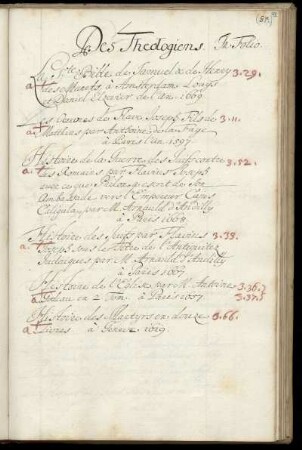 Des Theologiens. In Folio.
La Ste Bible de Samuel & de Henry 3.29.
des Marets à Amsterdam Louys
et Daniel Elzevier de l'an. 1669
Les Oeuvres de Flave Joseph Fils de 3.11.
Matthias par Antoine de la Faye
à Paris l'an 1597.
Histoire de la Guerre des Juifs contre 3.32.
les Romains par Flavius Joseph
avec ce que Philon a escrit de son
Ambassade vers l'Empereur Caius
Caligula, par M. Arnauld d'Andilly
à Paris 1668.
Histoire des Juifs par Flavius 3.33.
Joseph sous le titre de l'Antiquitez
Judaiques par M. Arnauld d'Andilly
à Paris 1667
Histoire de l'Eglise par M. Antoine 3.36.
Godeau en 2 Tom. à Paris 1657. 3.37.
Histoire des Martyrs en douze 3.66.
Livres à Geneve 1619.